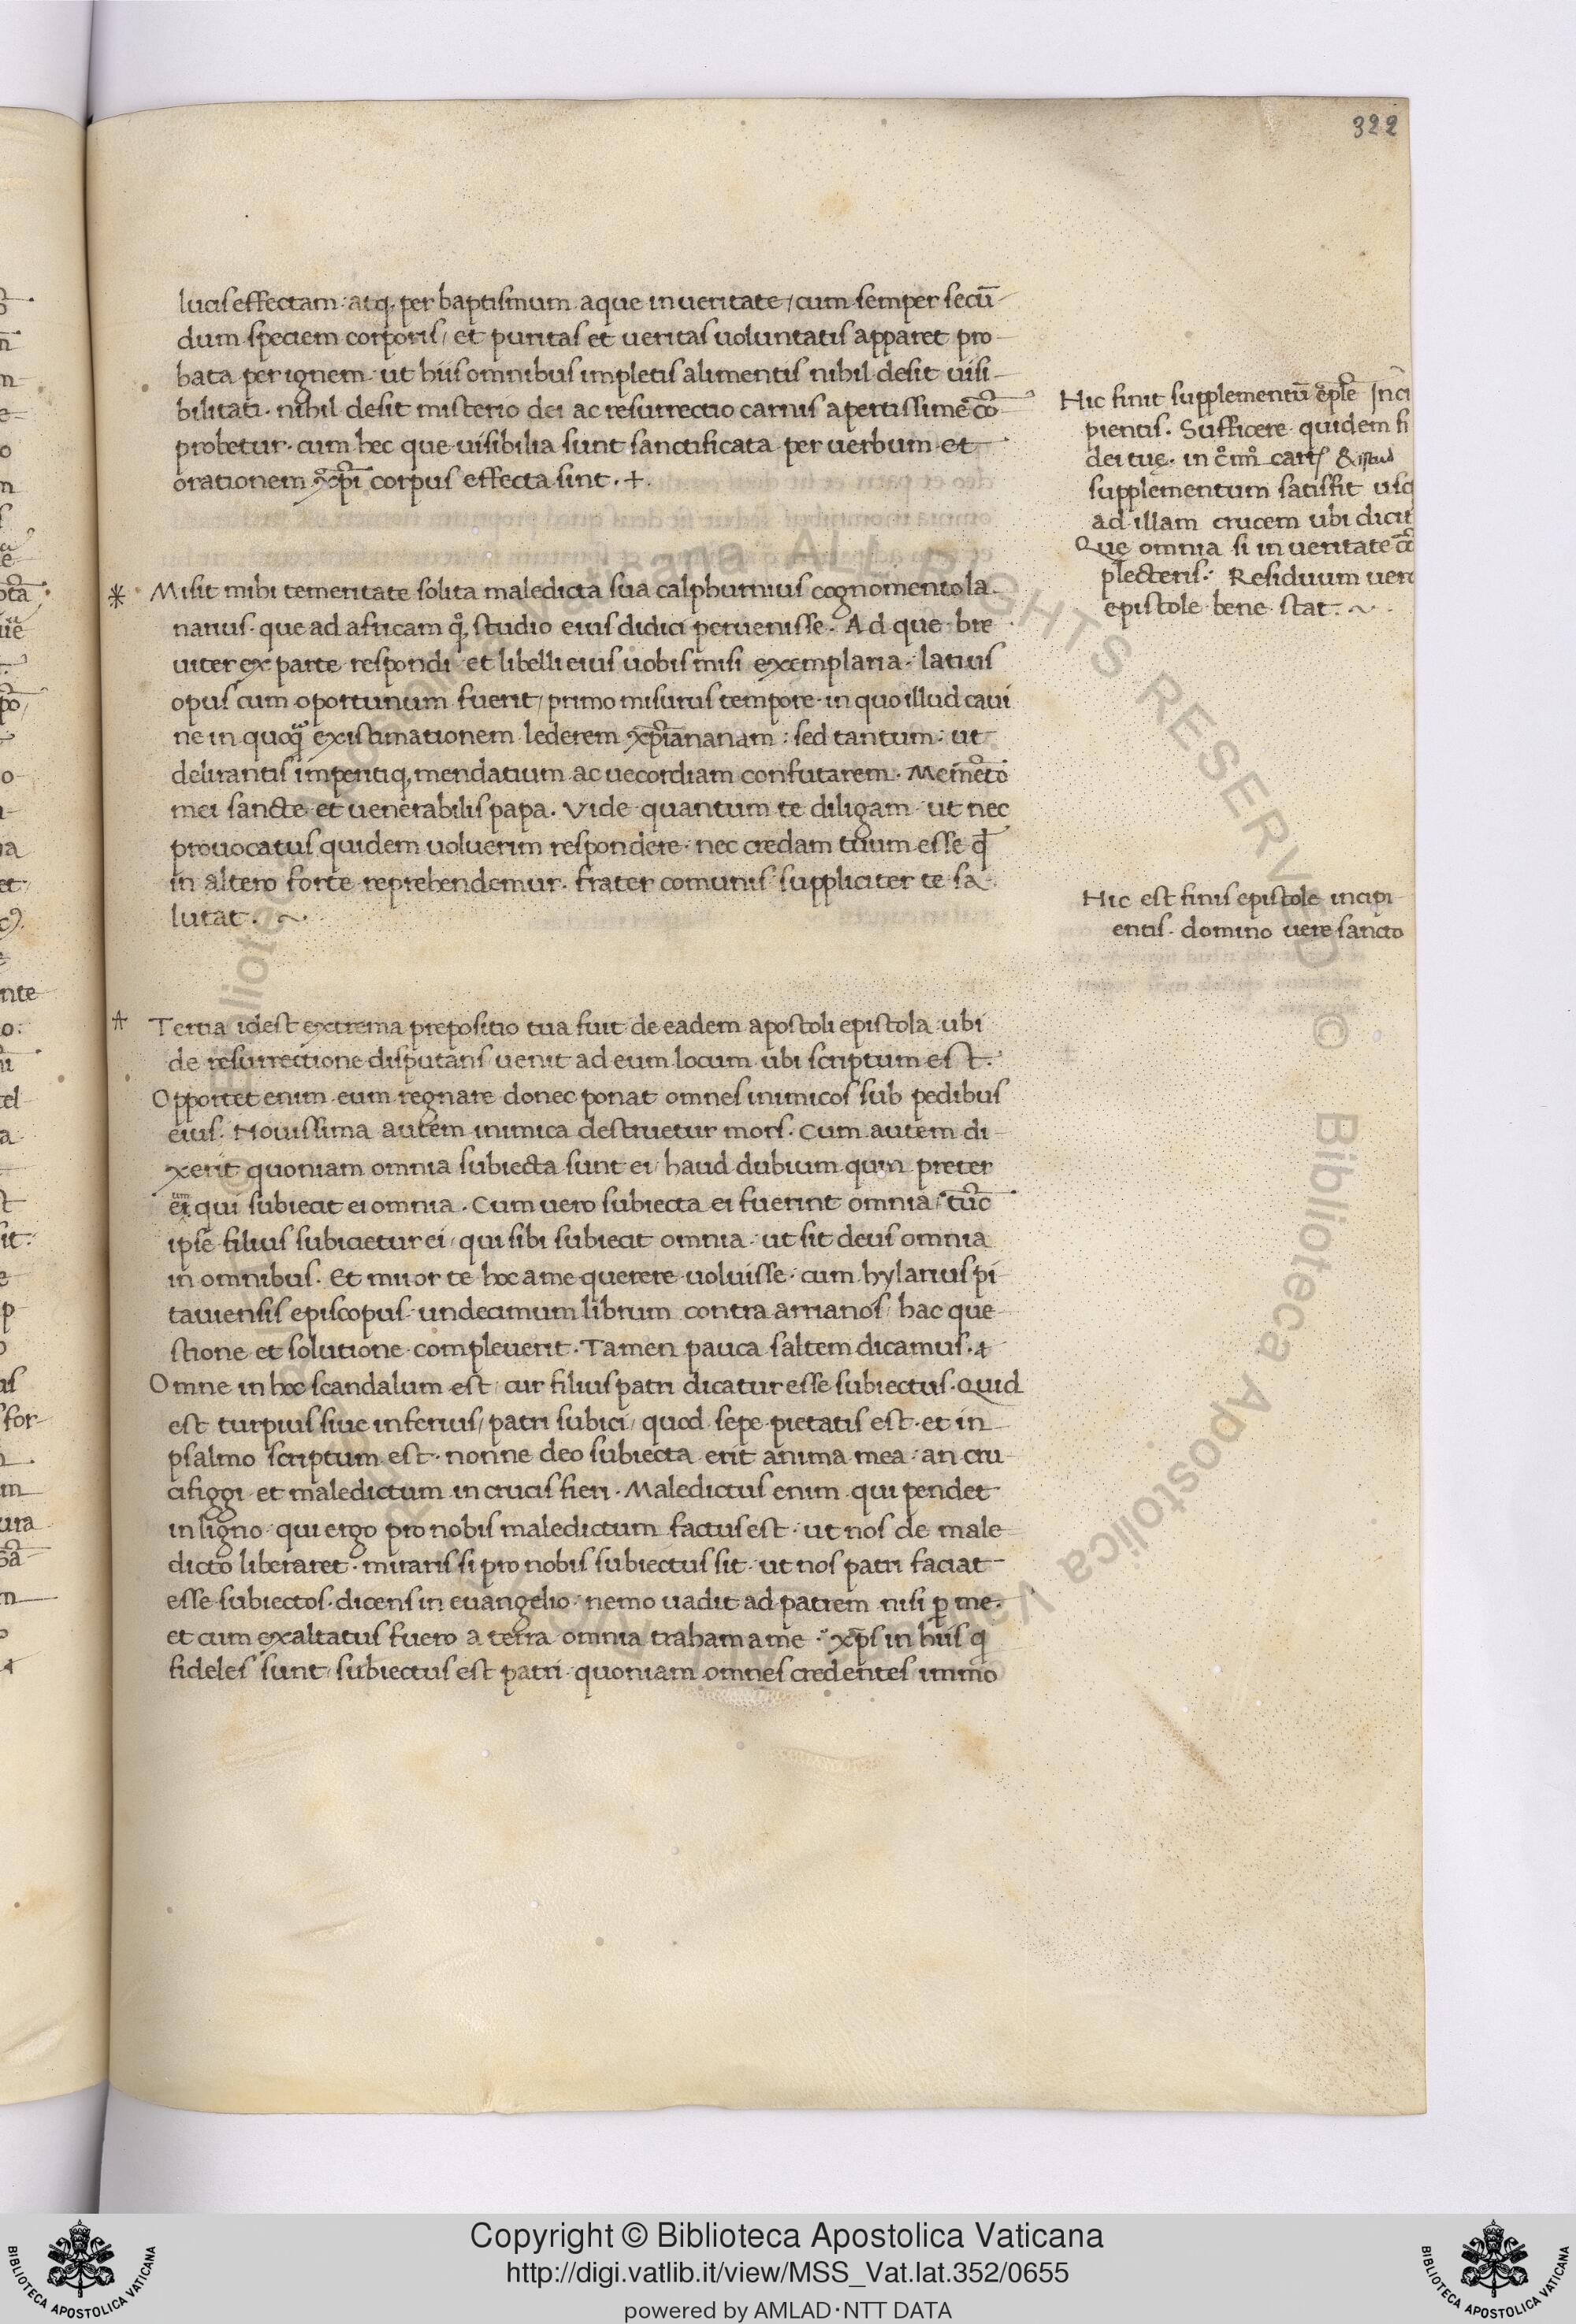 322
lucis effectam: atq; per baptismum aque in ueritate / cum semper secū
dum speciem corporis / et puritas et ueritas uoluntatis apparet pro
bata per ignem: ut hiis omnibus impletis alimentis nihil desit uisi
bilitati. nihil desit misterio dei ac resurrectio carnis apertissime cō
probetur. cum hec que uisibilia sunt sanctificata per uerbum et
orationem xp̄i corpus effecta sint. +.
Misit mihi temeritate solita maledicta sua calphurnius cognomento la
narius. que ad africam qͦq; studio eius didici peruenisse. Ad que bre
uiter ex parte respondi et libelli eius uobis misi exemplaria. latius
opus cum oportunum fuerit / primo misurus tempore. in quo illud caui
ne in quoq̄ existimationem lederem xp̄ianam: sed tantum: ut
delirantis imperitiq; mendatium ac uecordiam confutarem. Memēto
mei sancte et uenerabilis papa. Vide quantum te diligam ut nec
prouocatus quidem uoluerim respondere. nec credam tuum esse qđ
in altero forte reprehendemur. frater comunis suppliciter te sa
lutat. ~.
Tertia idest extrema prepositio tua fuit de eadem apostoli epistola: ubi
de resurrectione disputans uenit ad eum locum ubi scriptum est.
Opportet enim eum regnare donec ponat omnes inimicos sub pedibus
eius. Nouissima autem inimica destruetur mors. Cum autem di
xerit quoniam omnia subiecta sunt ei / haud dubium quin preter
ei qui subiecit ei omnia. Cum uero subiecta ei fuerint omnia / tūc
ipse filius subicietur ei / qui sibi subiecit omnia. ut sit deus omnia
in omnibus. Et miror te hoc a me querere uoluisse. cum hylarius pi
tauiensis episcopus undecimum librum contra arrianos / hac que
stione et solutione compleuerit. Tamen pauca saltem dicamus.
Omne in hoc scandalum est / cur filius patri dicatur esse subiectus. Quid
est turpius siue inferius / patri subici / quod sepe pietatis est. et in
psalmo scriptum est. nonne deo subiecta erit anima mea: an cru
cifiggi et maledictum in crucis fieri. Maledictus enim qui pendet
in ligno: qui ergo pro nobis maledictum factus est. ut nos de male
dicto liberaret. miraris si pro nobis subiectus sit. ut nos patri faciat
esse subiectos. dicens in euangelio. nemo uadit ad patrem nisi p̱ me.
et cum exaltatus fuero a terra omnia traham a me. xp̄s in hiis q
fideles sunt / subiectus est patri quoniam omnes credentes immo
Hic finit supplementū ēple Inci
pientis. Sufficere quidem fi
dei tuę. in
supplementum satisfit usq
ad illam crucem ubi dicit
Que omnia si in ueritate cō
plecteris. Residuum uero
epistole bene stat. ~
Hic est finis epistole incipi
entis. domino uere sancto
Copyright © Biblioteca Apostolica Vaticana
http://digi.vatlib.it/view/MSS_Vat.lat.352/0655
powered by AMLAD·NTT DATA
BIBLIOTECA APOSTOLICA VATICANA
BIBLIOTECA APOSTOLICA VATICANA